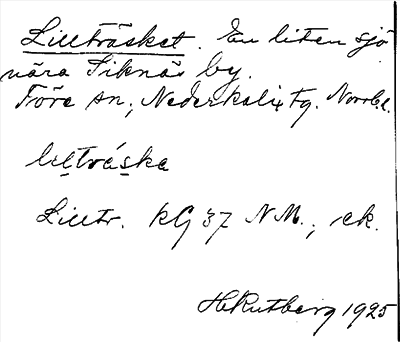 Lillträsket. En liten sjö
nära Siknäs by.
Töre sn., Nederkalix tg. Norrb. l.
lilträska
Lilltr. KG 37 N.M., ek.
H Rutberg 1925